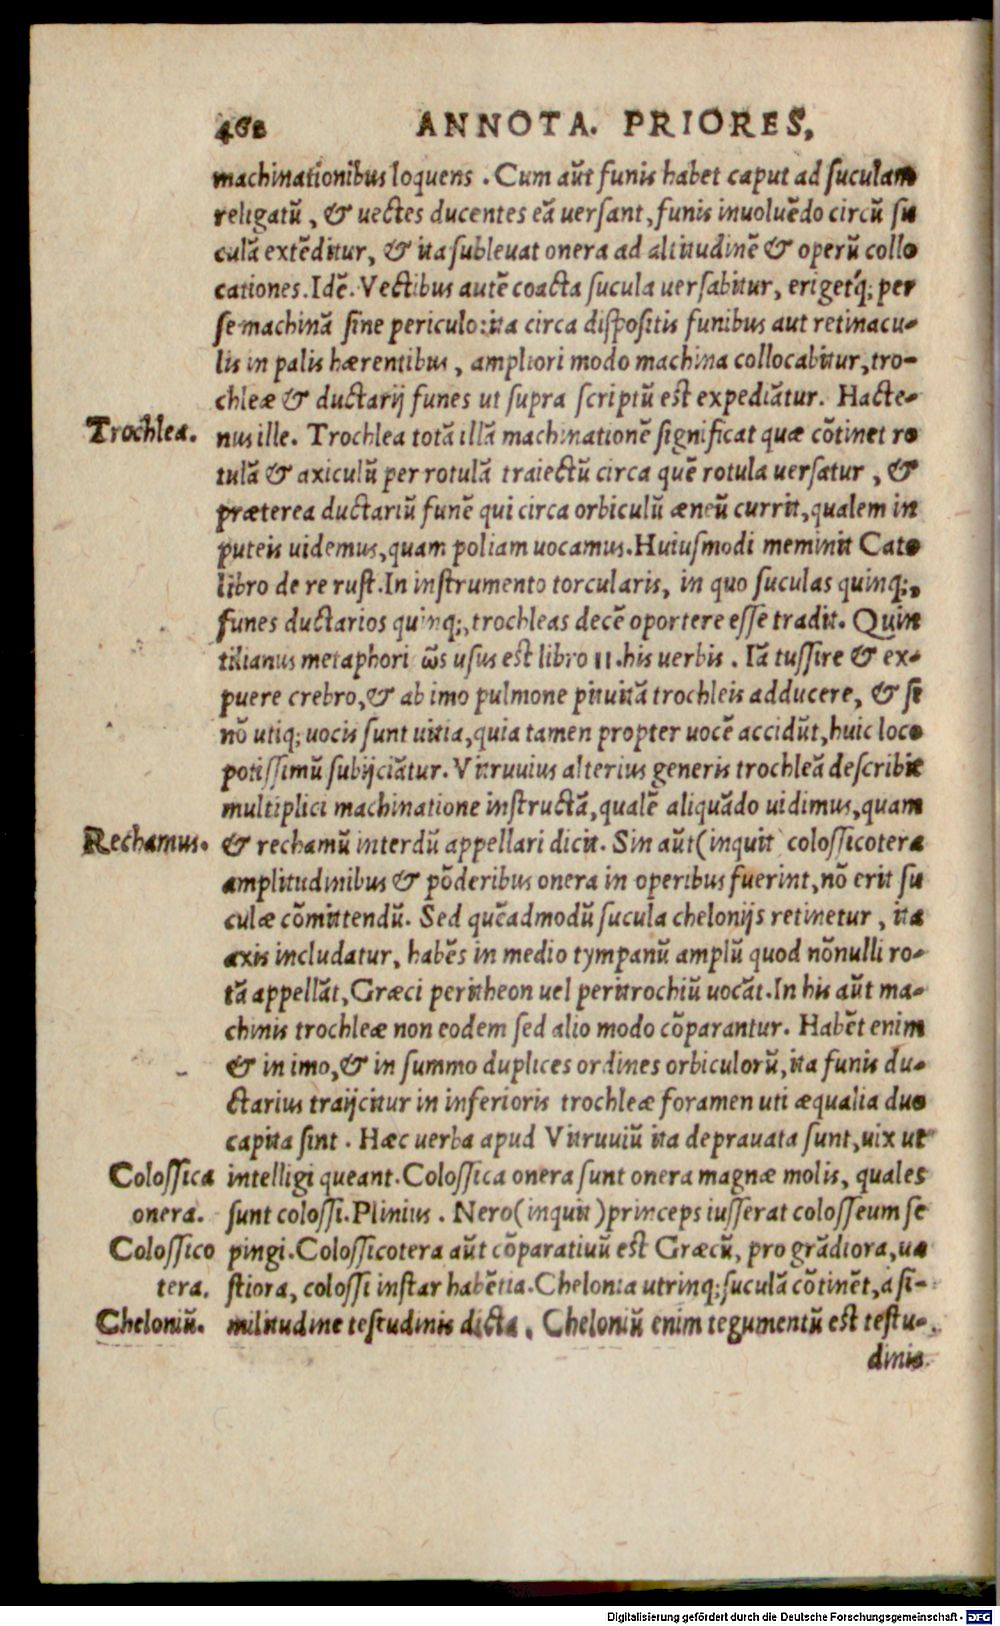 468 ANNOTA. PRIORES,
machinationibus loquens . Cum aũt funis habet caput ad suculam
religatũ, & uectes ducentes eã uersant, funis inuoluẽdo circũ su
culã extẽditur, & ita subleuat onera ad altitudinẽ & operũ collo
cationes. Idẽ. Vectibus autẽ coacta sucula uersabitur, erigetq́; per
se machinã sine periculo: ita circa dispositis funibus aut retinacu-
lis in palis hærentibus, ampliori modo machina collocabitur, tro-
chleæ & ductarij funes ut supra scriptũ est expediãtur. Hacte-
Trochlea. nus ille. Trochlea totã illã machinationẽ significat quæ cõtinet ro
tulã & axiculũ per rotulã traiectũ circa quẽ rotula uersatur, &
præterea ductariũ funẽ qui circa orbiculũ æneũ currit, qualem in
puteis uidemus, quam poliam uocamus. Huiusmodi meminit Cato
libro de re rust. In instrumento torcularis, in quo suculas quinq;,
funes ductarios quinq;, trochleas decẽ oportere esse tradit. Quin
tilianus metaphori ῶs usus est libro 11. his uerbis . Iã tussire & ex-
puere crebro, & ab imo pulmone pituitã trochleis adducere, & si
nõ utiq; uocis sunt uitia, quia tamen propter uocẽ accidũt, huic loco
potissimũ subijciãtur. Vitruuius alterius generis trochleã describit
multiplici machinatione instructã, qualẽ aliquãdo uidimus, quam
Rechamus. & rechamũ interdũ appellari dicit. Sin aũt (inquit colossicotera
amplitudinibus & põderibus onera in operibus fuerint, nõ erit su
culæ cõmittendũ. Sed quẽadmodũ sucula chelonijs retinetur, ita
axis includatur, habẽs in medio tympanũ amplũ quod nõnulli ro-
tã appellãt, Græci peritheon uel peritrochiũ uocãt. In his aũt ma-
chinis trochleæ non eodem sed alio modo cõparantur. Habẽt enim
& in imo, & in summo duplices ordines orbiculorũ, ita funis du-
ctarius traijcitur in inferioris trochleæ foramen uti æqualia duo
capita sint . Hæc uerba apud Vitruuiũ ita deprauata sunt, uix ut
Colossica intelligi queant. Colossica onera sunt onera magnæ molis, quales
onera. sunt colossi. Plinius . Nero (inquit) princeps iusserat colosseum se
Colossico pingi. Colossicotera aũt cõparatiuũ est Græcũ, pro grãdiora, ua
tera. stiora, colossi instar habẽtia. Chelonia utrinq; suculã cõtinẽt, a si-
Cheloniũ. militudine testudinis dicta. Cheloniũ enim tegumentũ est testu-
dinis
Digitalisierung gefördert durch die Deutsche Forschungsgemeinschaft - DFG